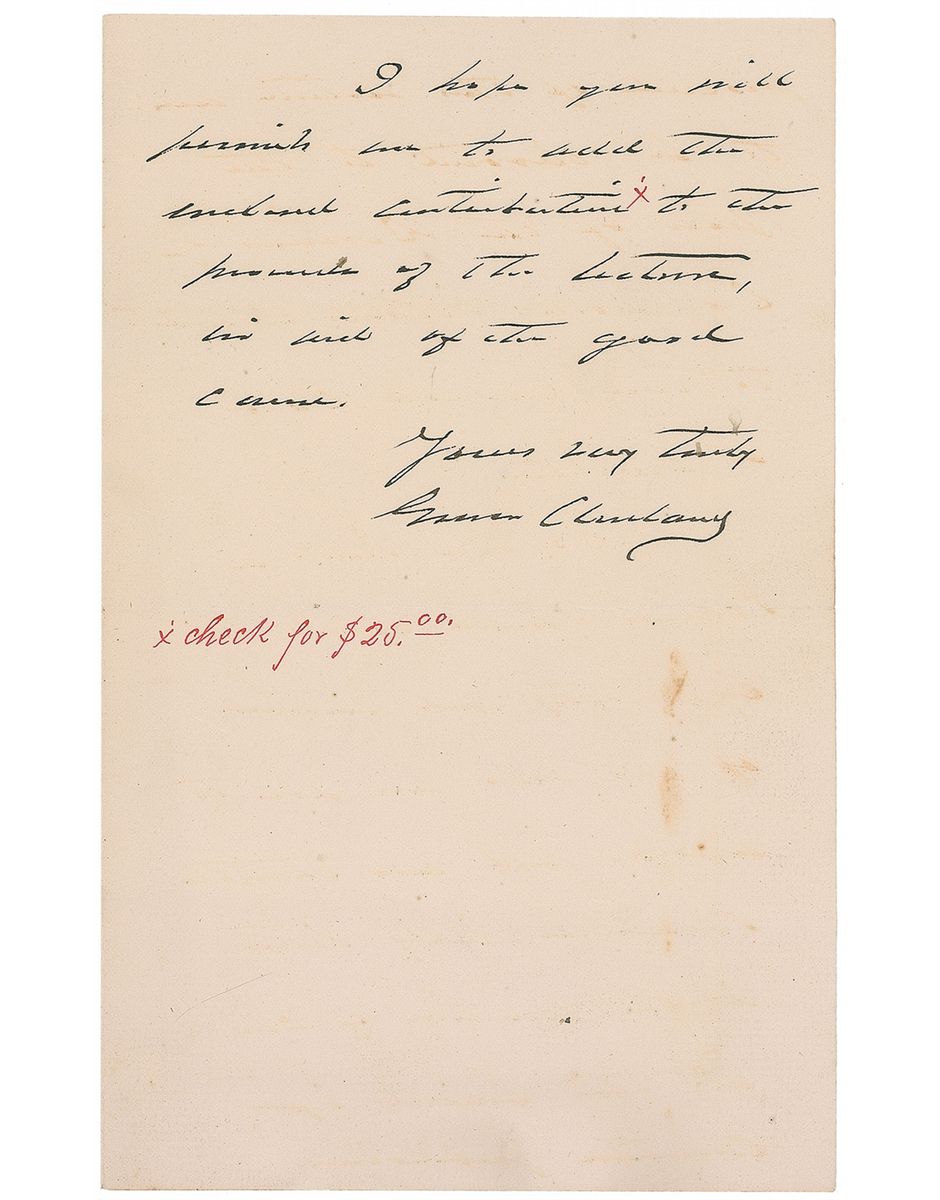 I hope you will
permit me to add the
enclosed contribution x to the
proceeds of the lecture,
in aid of the good
cause.
Yours very truly
Grover Cleveland
x check for $25.00.